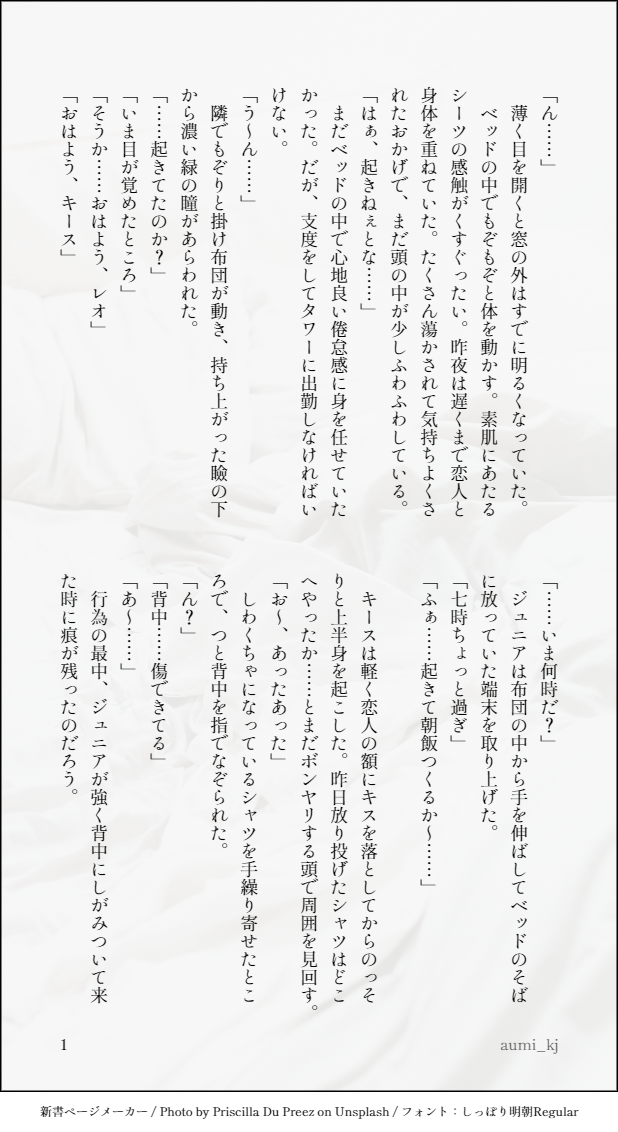 「ん……」
　薄く目を開くと窓の外はすでに明るくなっていた。
　ベッドの中でもぞもぞと体を動かす。素肌にあたる
シーツの感触がくすぐったい。昨夜は遅くまで恋人と
身体を重ねていた。たくさん蕩かされて気持ちよくさ
れたおかげで、まだ頭の中が少しふわふわしている。
「はぁ、起きねぇとな……」
　まだベッドの中で心地良い倦怠感に身を任せていた
かった。だが、支度をしてタワーに出勤しなければい
けない。
「う〜ん……」
　隣でもぞりと掛け布団が動き、持ち上がった瞼の下
から濃い緑の瞳があらわれた。
「……起きてたのか？」
「いま目が覚めたところ」
「そうか……おはよう、レオ」
「おはよう、キース」
「……いま何時だ？」
　ジュニアは布団の中から手を伸ばしてベッドのそば
に放っていた端末を取り上げた。
「七時ちょっと過ぎ」
「ふぁ……起きて朝飯つくるか〜……」
　キースは軽く恋人の額にキスを落としてからのっそ
りと上半身を起こした。昨日放り投げたシャツはどこ
へやったか……とまだボンヤリする頭で周囲を見回す。
「お〜、あったあった」
　しわくちゃになっているシャツを手繰り寄せたとこ
ろで、つと背中を指でなぞられた。
「ん？」
「背中……傷できてる」
「あ〜……」
　行為の最中、ジュニアが強く背中にしがみついて来
た時に痕が残ったのだろう。
1
aumi_kj
新書ページメーカー / Photo by Priscilla Du Preez on Unsplash / フォント：しっぽり明朝Regular